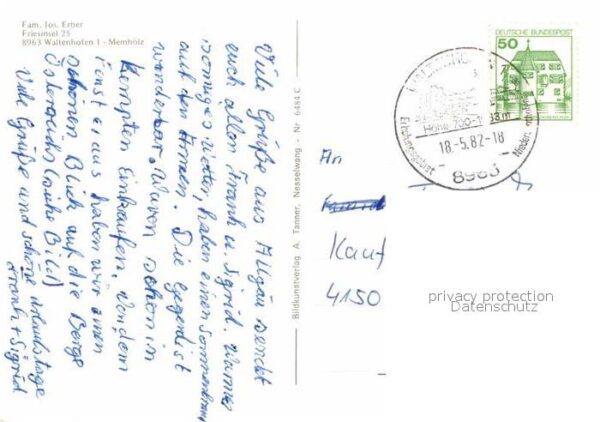 Fam. Jos. Erber
Friesinsel 25
8963 Waltenhofen 1 - Memhölz
Viele Grüße aus Allgäu sendet
euch allen Frank u. Sigrid. Warmes
sonniges Wetter, haben einen Sonnenbrand
auf den Armen. Die Gegend ist
wunderbar. Waren schon in
Kempten Einkaufen. Von dem
Fenster aus haben wir einen
schönen Blick auf die Berge
Österreichs (siehe Bild)
Viele Grüße und schöne Urlaubstage
Frank + Sigrid
Bildkunstverlag A. Tanner, Nesselwang - Nr 6484 C
DEUTSCHE BUNDESPOST
50
Höhe 700-
m
Erholungsgebiet
18.-5.82-18
8963
An
Kauf
4150
privacy protection
Datenschutz